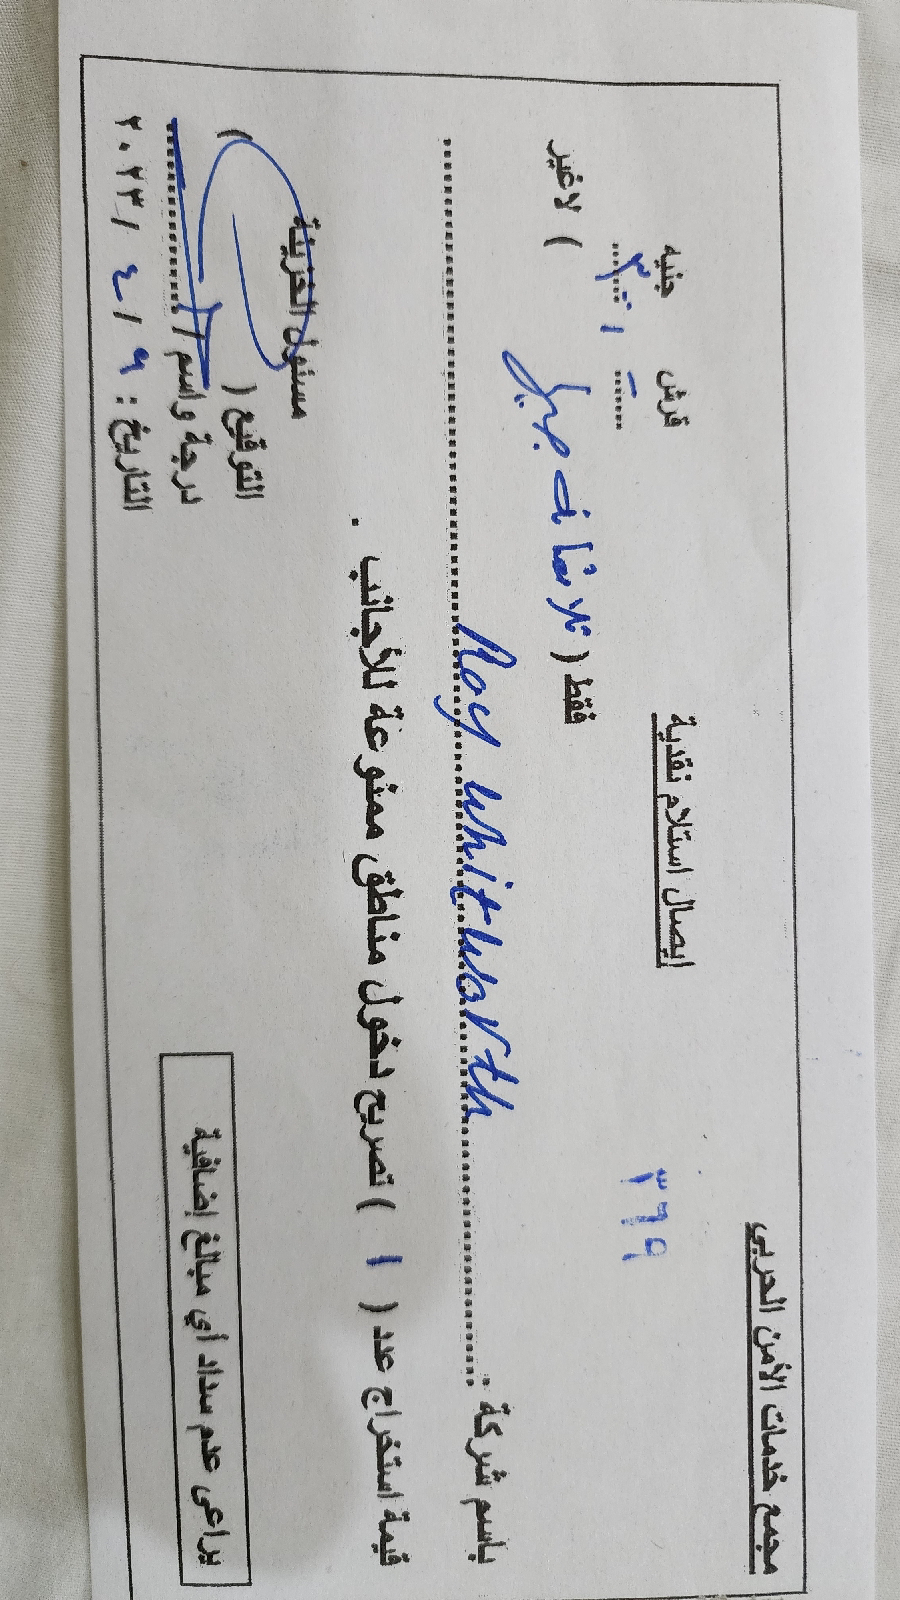 مجمع خدمات الأمن الحربي
٣٦٩
إيصال استلام نقدية
قرش جنيه
٣٠٠
فقط ( ثلاثمائة جنيه ) لاغير
باسم شركة Roy Whitworth
قيمة استخراج عدد ( ١ ) تصريح دخول مناطق ممنوعة للأجانب .
مسئول الخزينة
التوقيع ( )
درجة واسم /
التاريخ : ٩ / ٤ / ٢٠٢٣
يراعى عدم سداد أي مبالغ إضافية